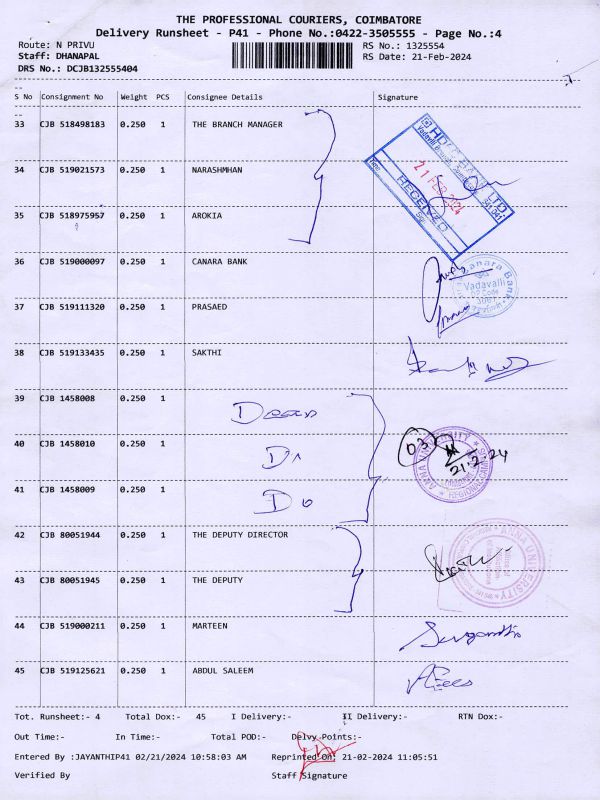 THE PROFESSIONAL COURIERS, COIMBATORE
Delivery Runsheet - P41 - Phone No.:0422-3505555 - Page No.:4
Route: N PRIVU RS No.: 1325554
Staff: DHANAPAL RS Date: 21-Feb-2024
DRS No.: DCJB132555404
S No Consignment No Weight PCS Consignee Details Signature
33 CJB 518498183 0.250 1 THE BRANCH MANAGER
HDFC BANK LTD
21 FEB 2024
RECEIVED
34 CJB 519021573 0.250 1 NARASHMHAN
35 CJB 518975957 0.250 1 AROKIA
36 CJB 519000097 0.250 1 CANARA BANK
Canara Bank
Vadavalli
37 CJB 519111320 0.250 1 PRASAED
38 CJB 519133435 0.250 1 SAKTHI
39 CJB 1458008 0.250 1 Dean
40 CJB 1458010 0.250 1
03
21-2-24
ANNA UNIVERSITY
41 CJB 1458009 0.250 1 Do
42 CJB 80051944 0.250 1 THE DEPUTY DIRECTOR
ANNA UNIVERSITY
43 CJB 80051945 0.250 1 THE DEPUTY
44 CJB 519000211 0.250 1 MARTEEN
45 CJB 519125621 0.250 1 ABDUL SALEEM
Tot. Runsheet:- 4 Total Dox:- 45 I Delivery:- II Delivery:- RTN Dox:-
Out Time:- In Time:- Total POD:- Delvy Points:-
Entered By :JAYANTHIP41 02/21/2024 10:58:03 AM Reprinted On: 21-02-2024 11:05:51
Verified By Staff Signature